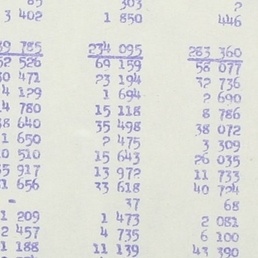 303 2
3 402 1 850 446
39 785 234 095 283 360
52 526 69 159 58 077
30 471 23 194 32 736
4 129 1 694 2 690
14 780 15 118 8 786
38 640 35 498 38 072
1 650 2 475 3 309
0 510 15 643 26 035
5 917 13 972 11 733
1 656 33 618 40 724
- 37 68
1 209 1 473 2 081
2 457 4 735 6 100
1 188 11 139 43 390